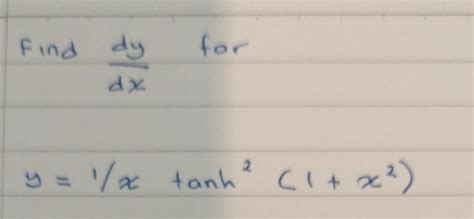 Find dy/dx for
y = 1/x tanh² (1 + x²)